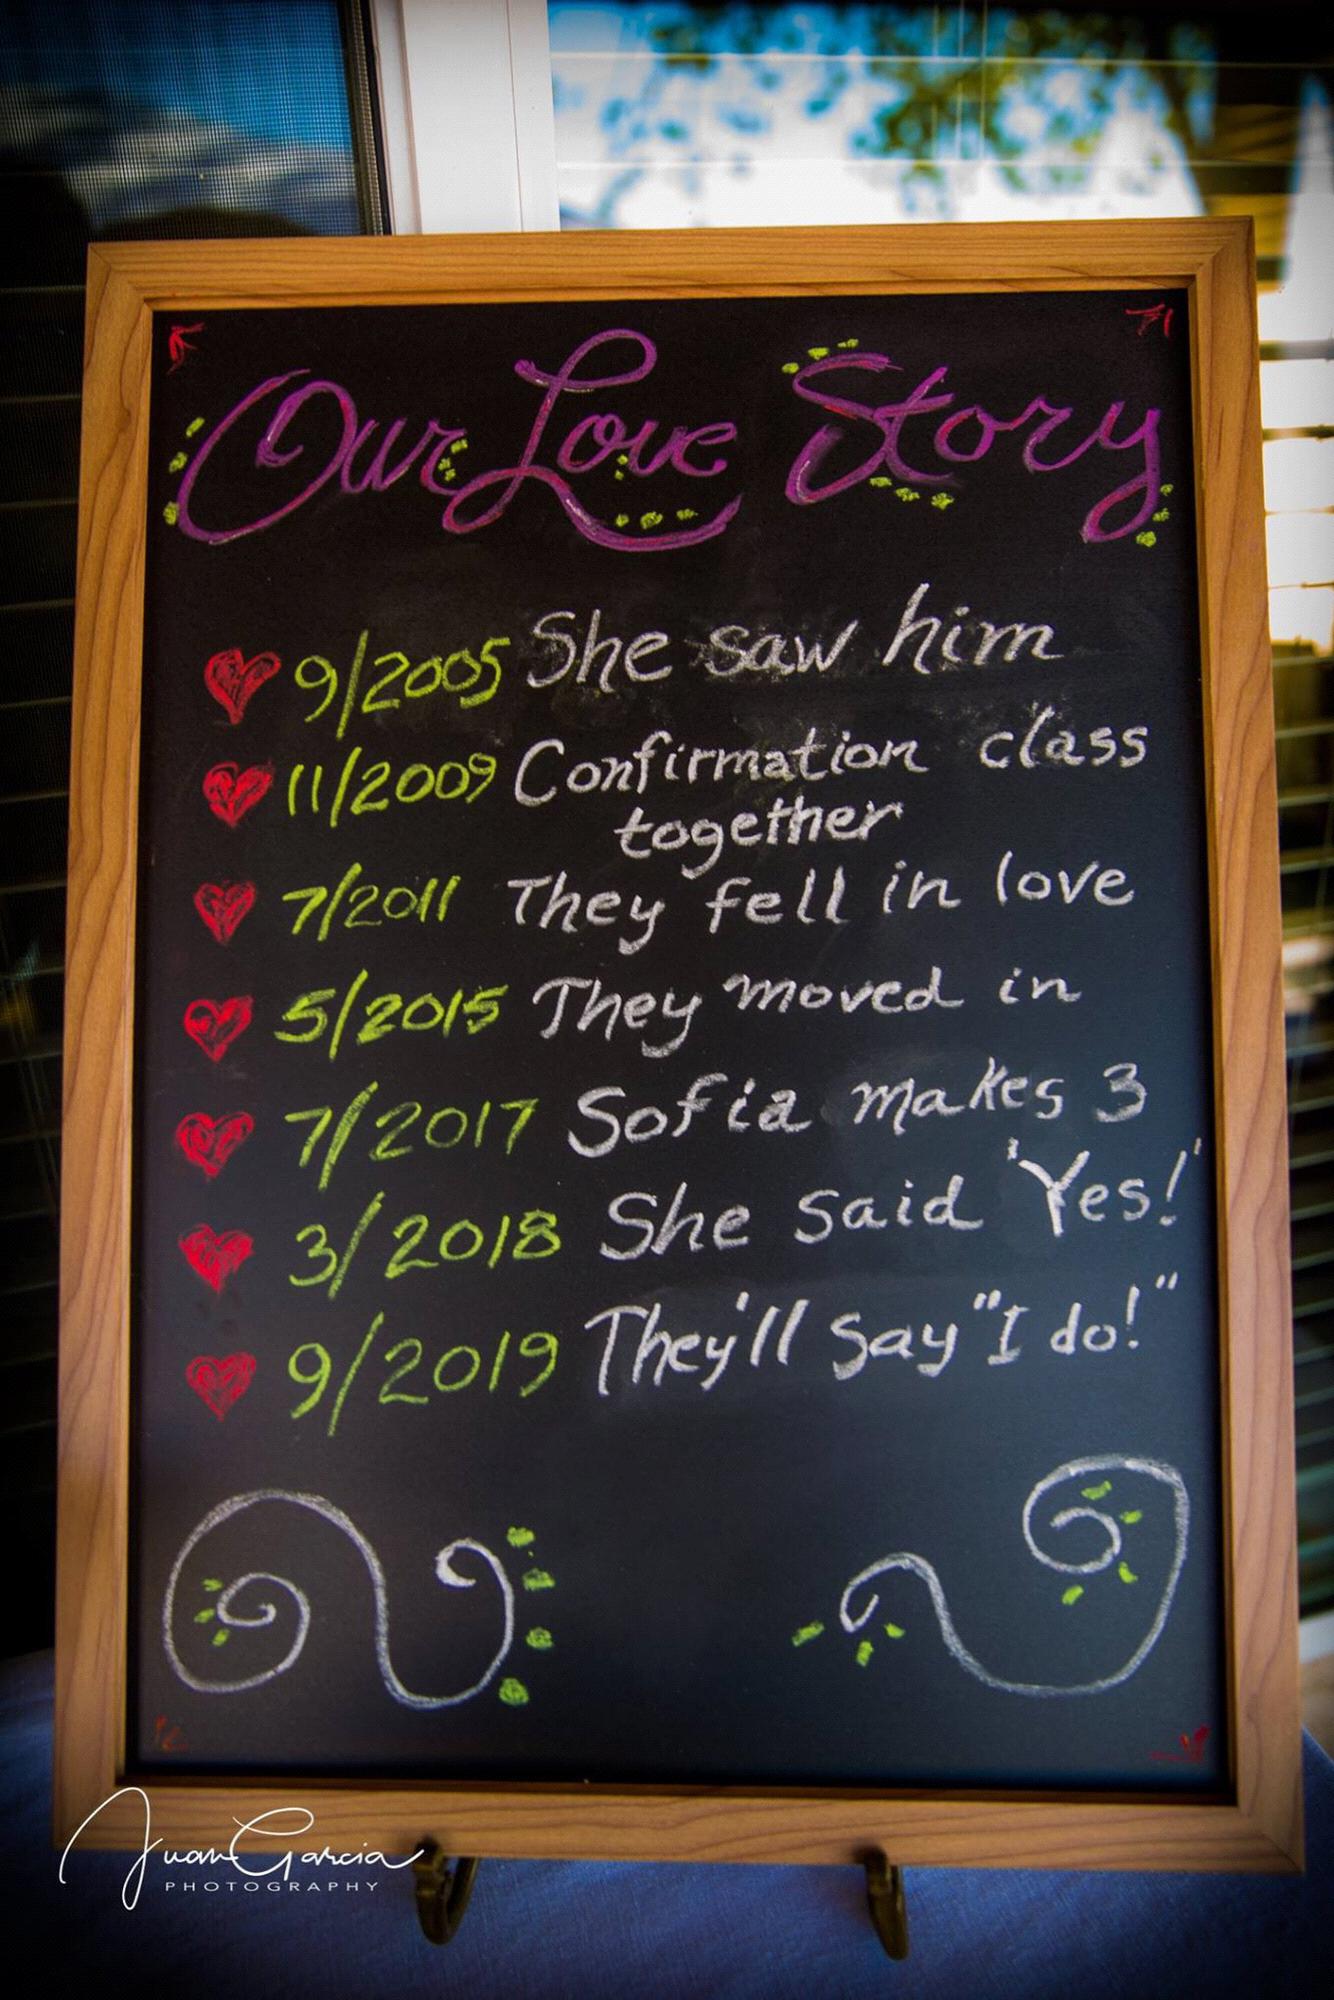 Our Love Story
9/2005 She saw him
11/2009 Confirmation class
together
7/2011 They fell in love
5/2015 They moved in
7/2017 Sofia makes 3
3/2018 She said 'Yes!'
9/2019 They'll say "I do!"
Juan Garcia
PHOTOGRAPHY